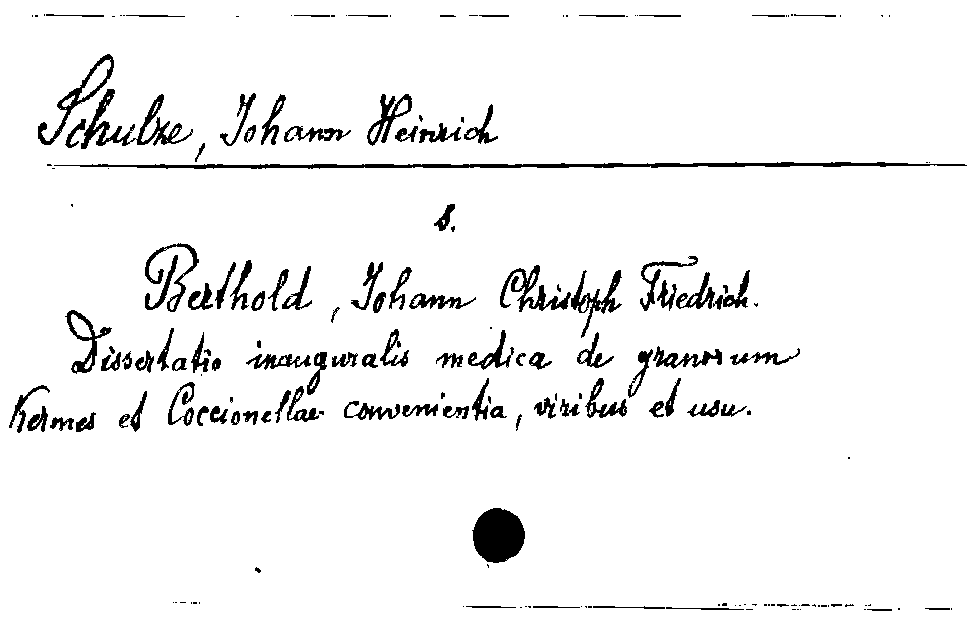 Schulze, Johann Heinrich
s.
Berthold, Johann Christoph Friedrich.
Dissertatio inauguralis medica de granorum
Kermes et Coccionellae convenientia, viribus et usu.